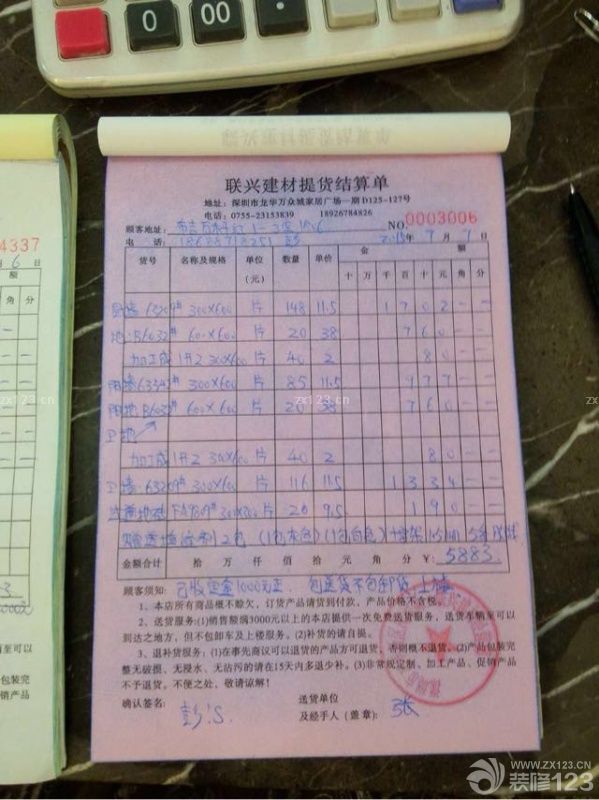 联兴建材提货结算单
地址:深圳市龙华万众城家居广场一期D125-127号
电话:0755-23153839 18926784826
顾客地址: NO. 0003006
电 话: 2015年9月7日
货号 名称及规格 单位(元) 数量 单价 金 额
十 万 千 百 十 元 角 分
6320# 300×600 片 148 11.5 1 7 0 2 - -
地:B6032# 600×600 片 20 38 7 6 0 - -
加工成 1开2 300×600 片 40 2 8 0 - -
300×600 片 85 11.5 9 7 7 - -
阳地 B6032# 600×600 片 20 38 7 6 0 - -
卫地
加工成 1开2 300×600 片 40 2 8 0 - -
卫墙:6320# 300×600 片 116 11.5 1 3 3 4 - -
300×300 片 20 9.5 1 9 0 - -
2包 (1包灰色) (1包白色)
金额合计 拾 万 仟 佰 拾 元 角 分 ¥: 5883
顾客须知: 已收定金1000元正. 包送货不包卸货 上楼
1、本店所有商品概不赊欠,订货产品请货到付款,产品价格不含税。
2、送货服务:(1)销售额满3000元以上的本店提供一次免费送货服务,送货车辆至可以
到达之地方,但不包卸车及上楼服务。(2)补货的请自提。
3、退补货服务:(1)在事先商议可以退货的产品方可退货,否则概不退货。(2)产品包装完
整无破损、无浸水、无沾污的请在15天内多退少补。(3)非常规定制、加工产品、促销产品
不予退货,不便之处,敬请谅解!
确认签名: 送货单位
及经手人(盖章): 张
4337
月 6 日
额
元 角 分
0
00
000
·
=
zx123.cn
WWW.ZX123.CN
装修123